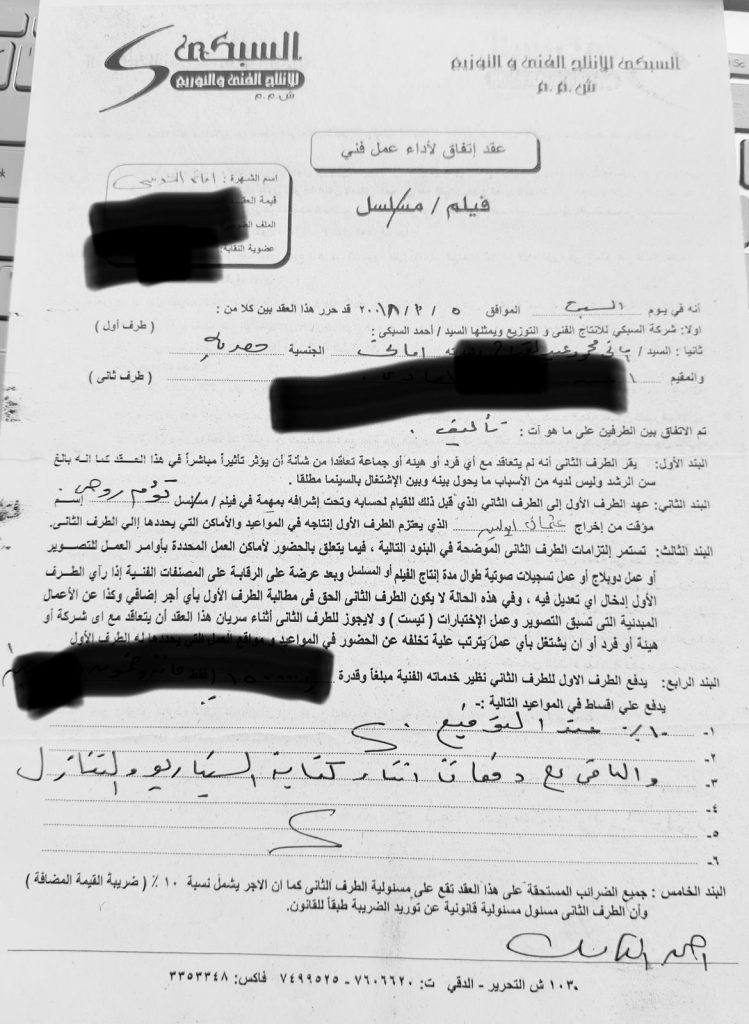 السبكى
للإنتاج الفنى والتوزيع
ش.م.م
السبكى للإنتاج الفنى و التوزيع
ش.م.م
عقد إتفاق لأداء عمل فني
اسم الشهرة :
قيمة العقد
الملف الضريبي
عضوية النقابة:
فيلم / مسلسل
أنه في يوم السبت الموافق ٥ / / قد حرر هذا العقد بين كلا من :
اولا: شركة السبكي للانتاج الفنى و التوزيع ويمثلها السيد / أحمد السبكى : ( طرف أول )
ثانيا : السيد / أمانى الجنسية مصرية
والمقيم ( طرف ثانى )
تم الاتفاق بين الطرفين على ما هو آت : تأليف .
البند الأول: يقر الطرف الثانى أنه لم يتعاقد مع أي فرد أو هيئه أو جماعة تعاقدا من شأنة أن يؤثر تأثيراً مباشراً في هذا العقد كما انه بالغ
سن الرشد وليس لديه من الأسباب ما يحول بينه وبين الإشتغال بالسينما مطلقا .
البند الثاني: عهد الطرف الأول إلى الطرف الثاني الذي قبل ذلك للقيام لحسابه وتحت إشرافه بمهمة في فيلم / مسلسل توأم روحى . إسم
مؤقت من إخراج عثمان ابولبن الذي يعتزم الطرف الأول إنتاجه في المواعيد والأماكن التي يحددها إلي الطرف الثانى.
البند الثالث: تستمر إلتزامات الطرف الثانى الموضحة في البنود التالية ، فيما يتعلق بالحضور لأماكن العمل المحددة بأوامر العمل للتصوير
أو عمل دوبلاج أو عمل تسجيلات صوتية طوال مدة إنتاج الفيلم أو المسلسل وبعد عرضة على الرقابة على المصنفات الفنية إذا رأي الطرف
الأول إدخال اي تعديل فيه ، وفي هذه الحالة لا يكون الطرف الثانى الحق فى مطالبة الطرف الأول بأي أجر إضافي وكذا عن الأعمال
المبدئية التى تسبق التصوير وعمل الإختبارات ( تيست ) و لايجوز للطرف الثانى أثناء سريان هذا العقد أن يتعاقد مع اى شركة أو
هيئة أو فرد أو ان يشتغل بأي عمل يترتب علية تخلفه عن الحضور في المواعيد و مواقع العمل التي يحددها له الطرف الأول
البند الرابع: يدفع الطرف الاول للطرف الثاني نظير خدماته الفنية مبلغاً وقدرة
يدفع علي اقساط في المواعيد التالية :-
١- ١٠٪ عند التوقيع .
٢-
٣- والباقى ع دفعات اثناء كتابة السيناريو والتنازل
٤-
٥-
٦-
البند الخامس : جميع الضرائب المستحقة على هذا العقد تقع على مسئولية الطرف الثانى كما ان الاجر يشمل نسبة ١٠ ٪ ( ضريبة القيمة المضافة )
وأن الطرف الثانى مسئول مسئولية قانونية عن توريد الضريبة طبقاً للقانون.
١٠٣ ش التحرير - الدقي ت: ٧٦٠٦٦٢٠ - ٧٤٩٩٥٢٥ فاكس: ٣٣٥٣٣٤٨